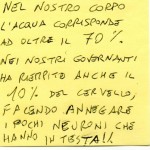 NEL NOSTRO CORPO
L'ACQUA CORRISPONDE
AD OLTRE IL 70%.
NEI NOSTRI GOVERNANTI
HA RIEMPITO ANCHE IL
10% DEL CERVELLO,
FACENDO ANNEGARE
I POCHI NEURONI CHE
HANNO IN TESTA!!